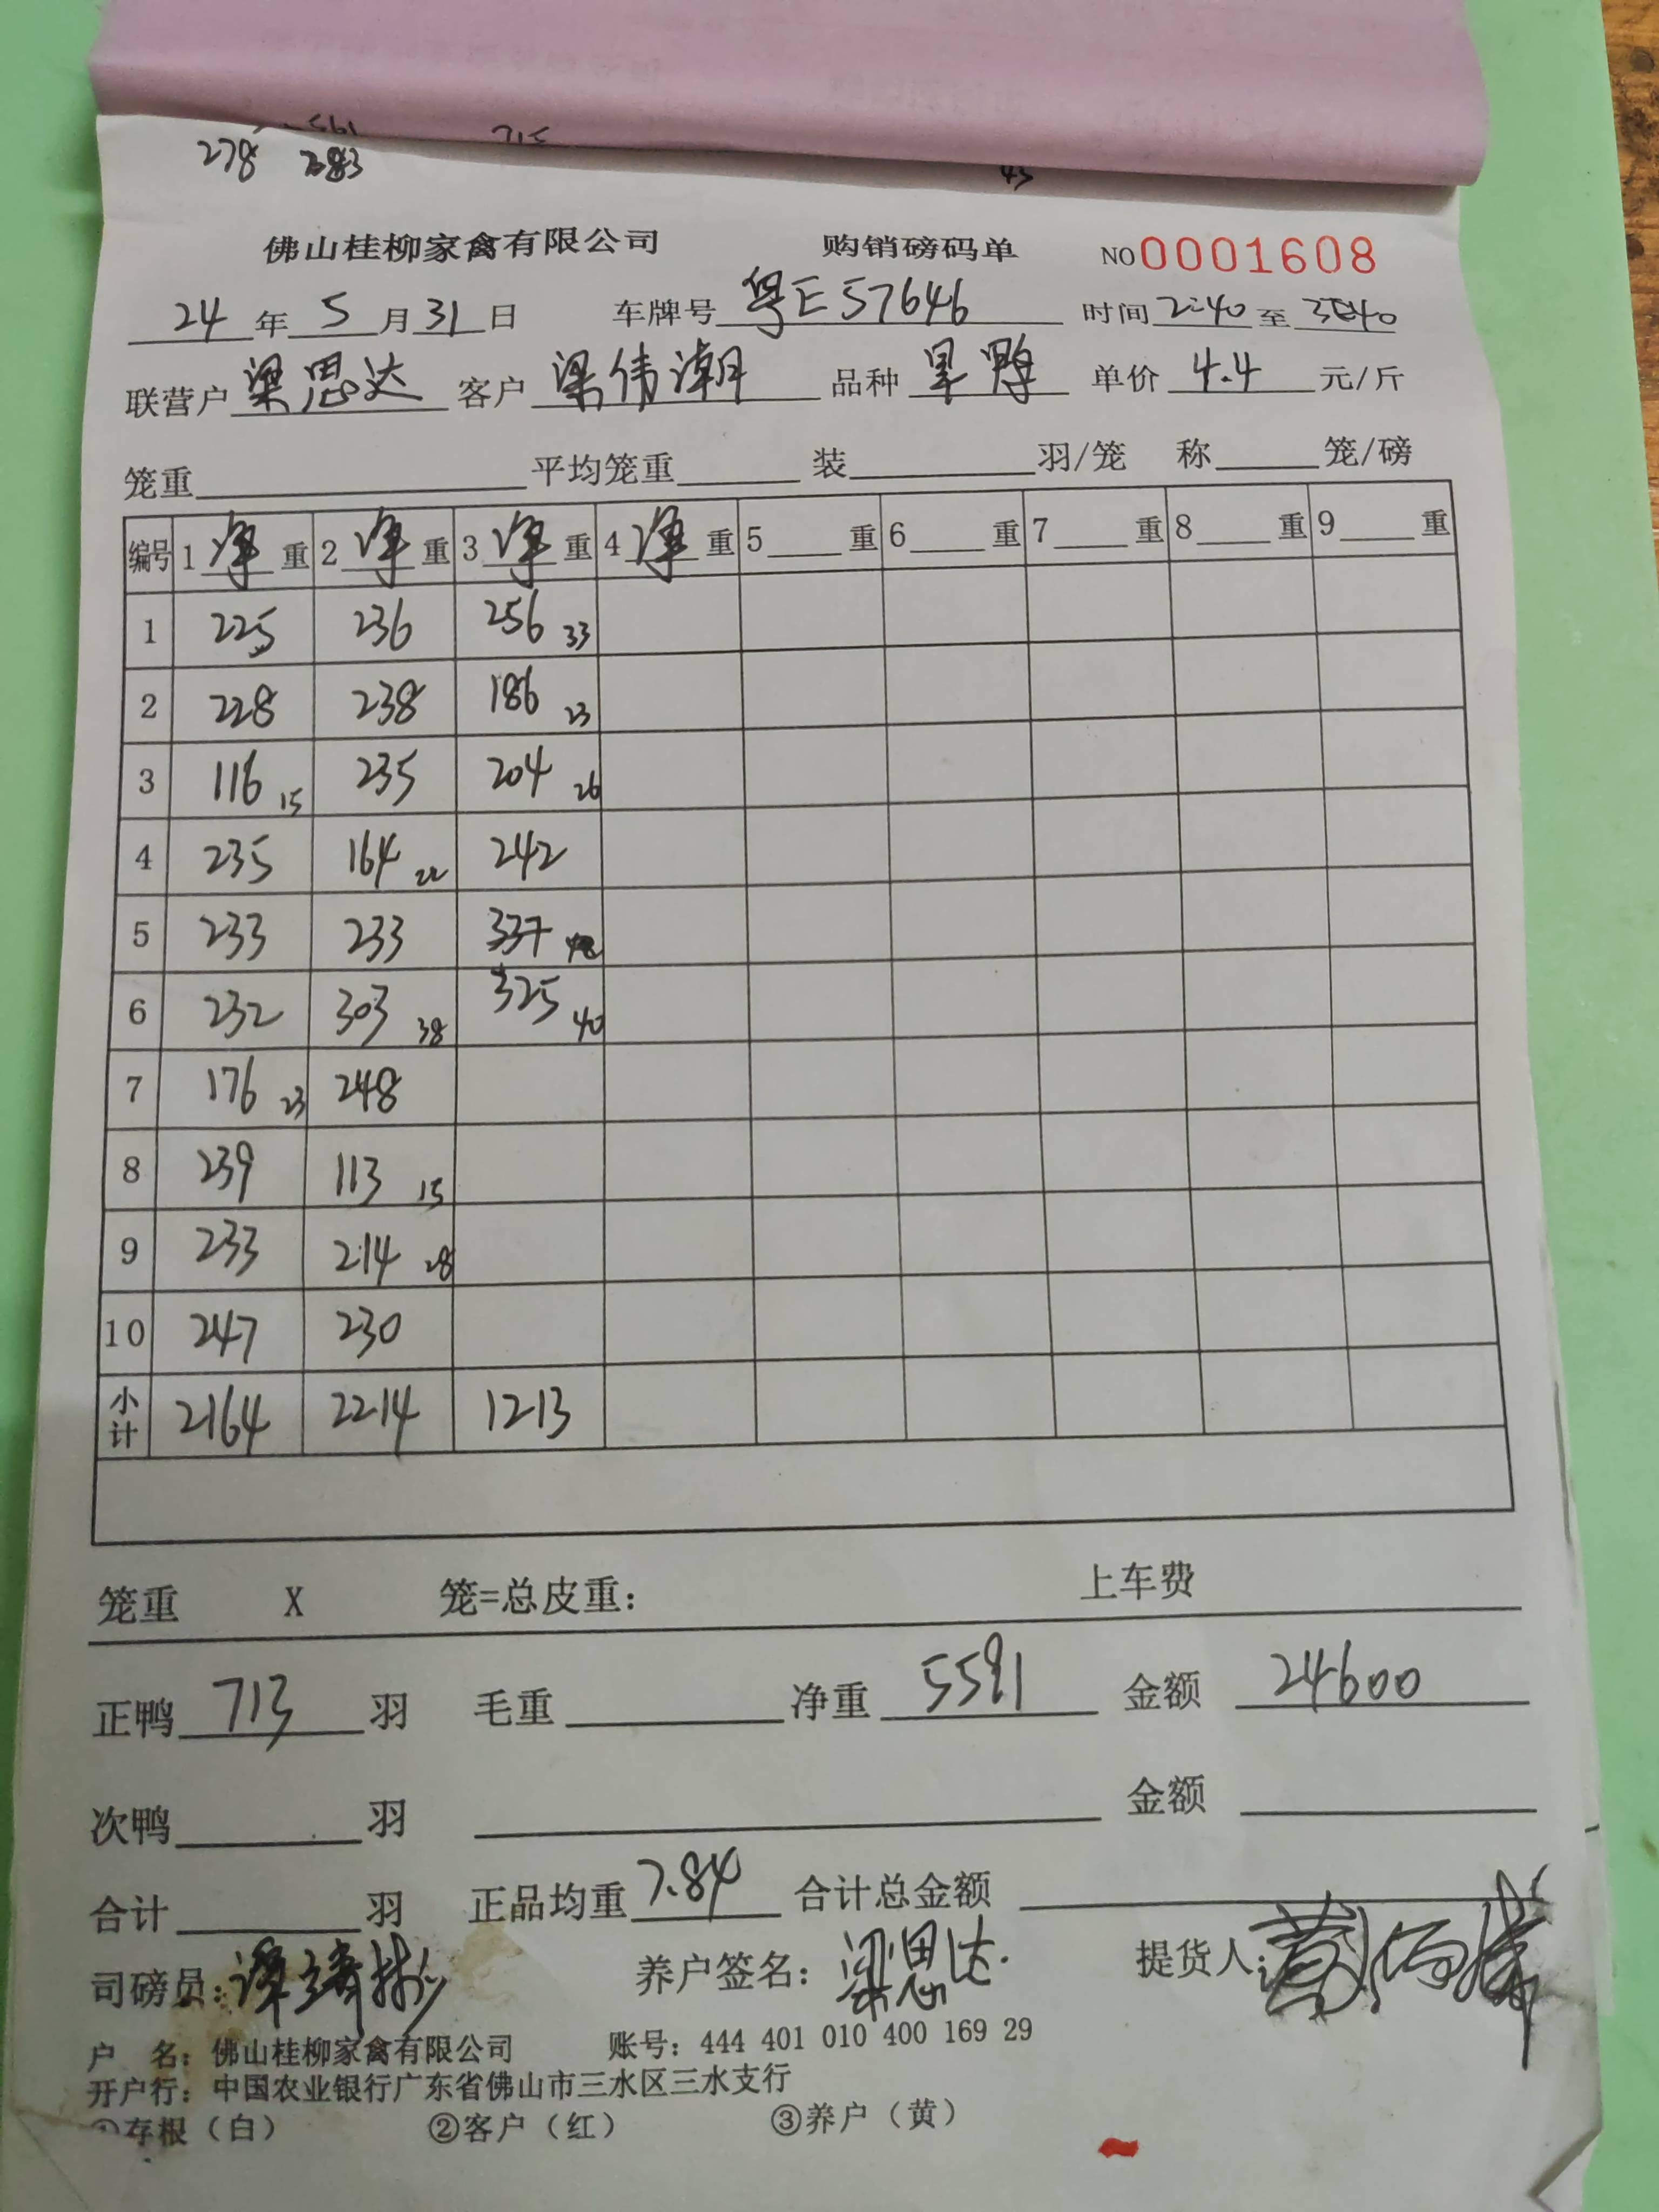 278 2683
佛山桂柳家禽有限公司 购销磅码单 NO 0001608
24年5月31日 车牌号 粤E57646 时间 2:40 至
联营户 梁思达 客户 梁伟潮 品种 单价 4.4 元/斤
笼重 平均笼重 装 羽/笼 称 笼/磅
编号 1 净 重 2 净 重 3 净 重 4 净 重 5 重 6 重 7 重 8 重 9 重
1 225 236 256 33
2 228 238 186 23
3 116 15 235 204 26
4 235 164 22 242
5 233 233 337
6 232 303 38 325 40
7 176 23 248
8 239 113 15
9 233 214 28
10 247 230
小计 2164 2214 1213
笼重 X 笼=总皮重: 上车费
正鸭 713 羽 毛重 净重 5591 金额 24600
次鸭 羽 金额
合计 羽 正品均重 7.84 合计总金额
司磅员: 养户签名: 梁思达 提货人:
户 名: 佛山桂柳家禽有限公司 账号: 444 401 010 400 169 29
开户行: 中国农业银行广东省佛山市三水区三水支行
①存根（白） ②客户（红） ③养户（黄）